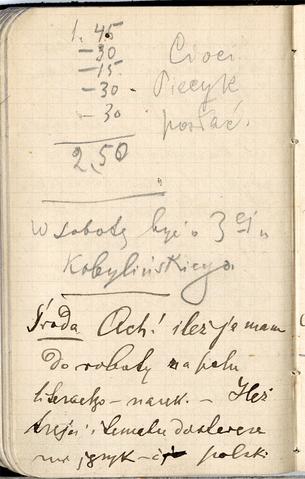 1. 45
– 30 Cioci
– 15
– 30 · Piecyk
– 30 posłać.
2,50
W sobotę być o 3 ej u
Kobylińskiego.
Środa Ach! ileż ja mam
do roboty na polu
literacko – nauk. – Ileż
język polski